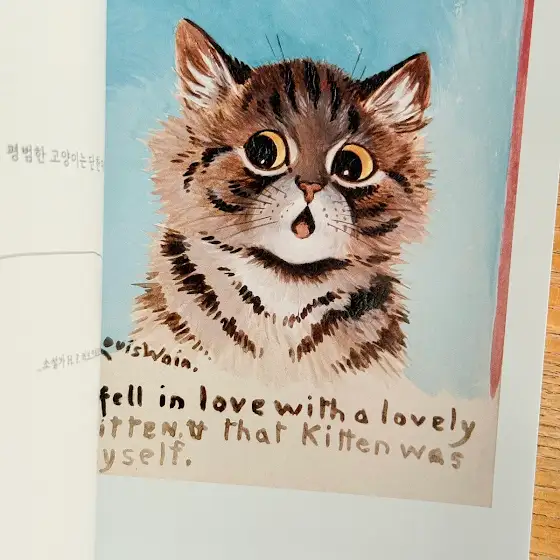 평범한 고양이는 단 한
소설가 H.
ouisWain.
fell in love with a lovely
itten, & that Kitten was
yself.